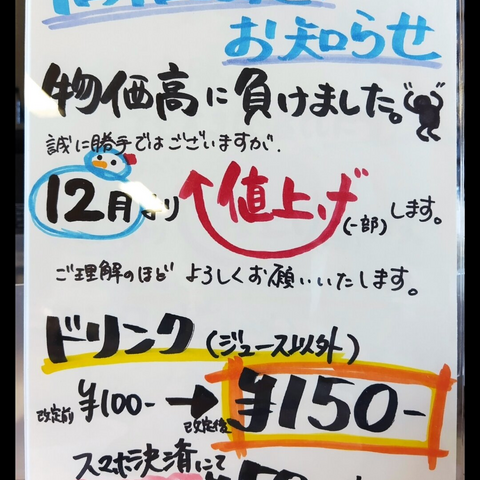 お知らせ
物価高に負けました。
誠に勝手ではございますが、
12月より 値上げ(一部)します。
ご理解のほど よろしくお願いいたします。
ドリンク(ジュース以外)
改定前 ¥100- → 改定後 ¥150-
スマホ決済にて